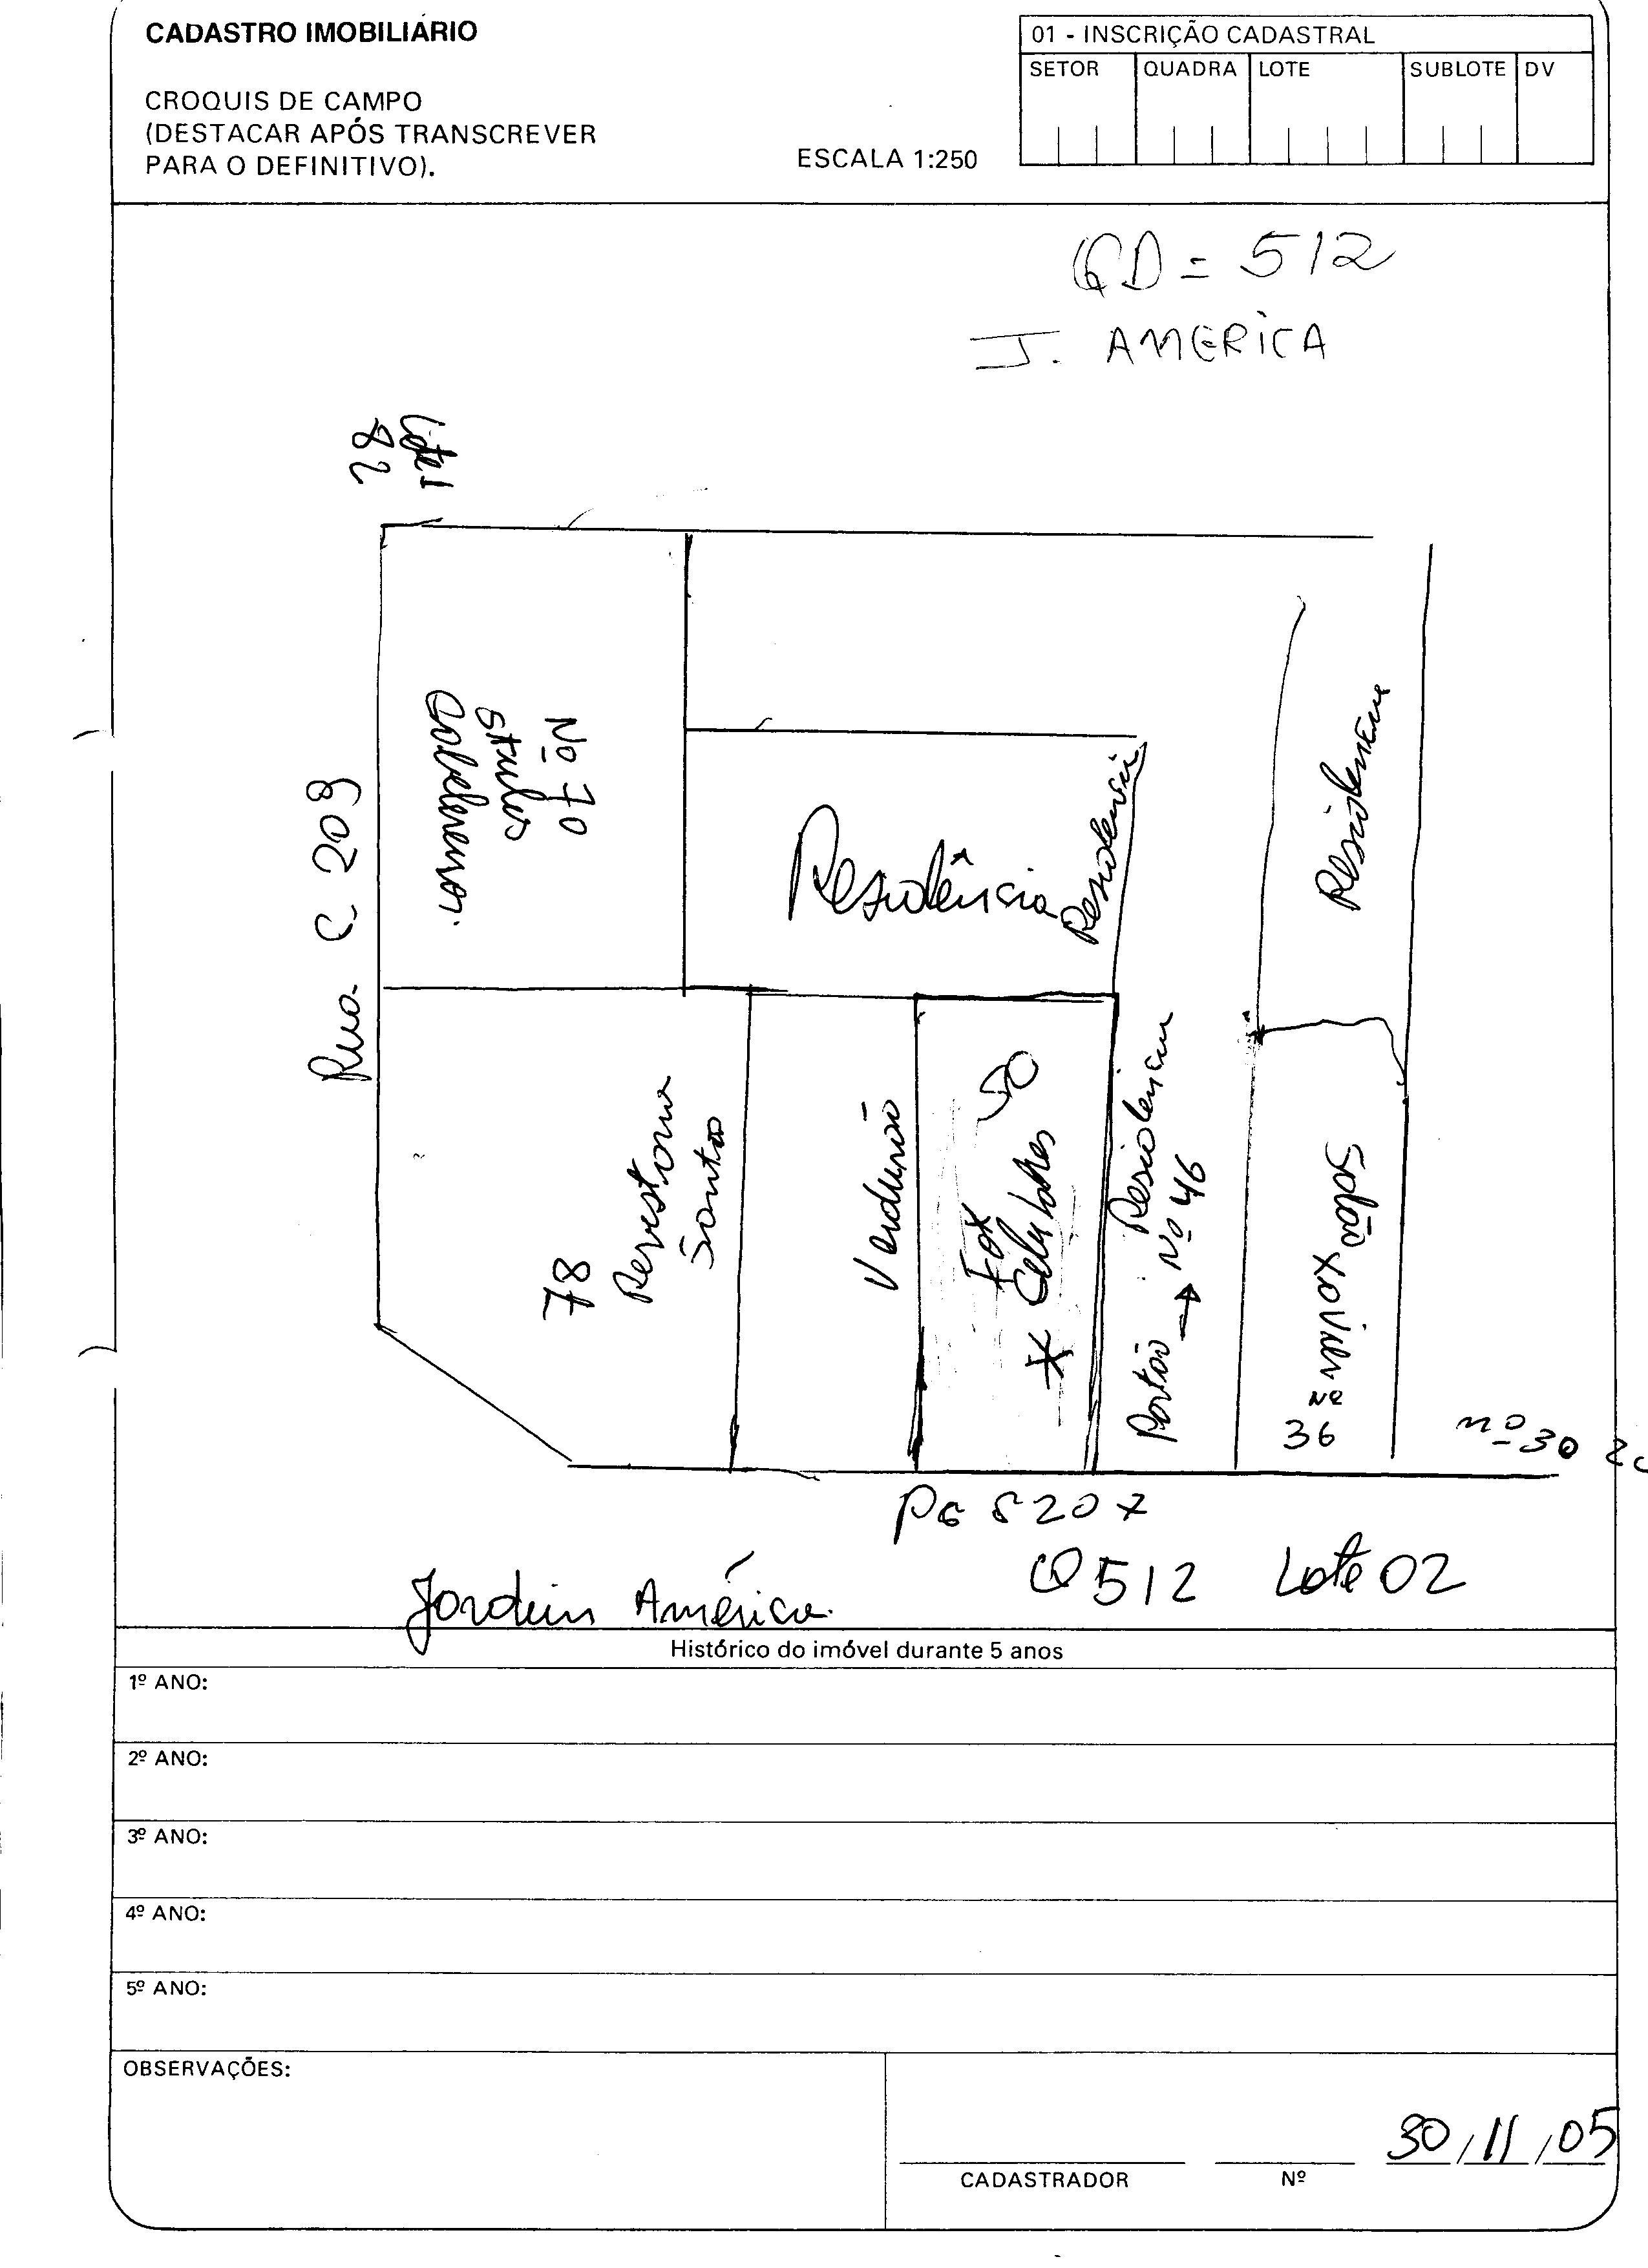 CADASTRO IMOBILIÁRIO
CROQUIS DE CAMPO
(DESTACAR APÓS TRANSCREVER
PARA O DEFINITIVO).
ESCALA 1:250
01 - INSCRIÇÃO CADASTRAL
SETOR QUADRA LOTE SUBLOTE DV
QD = 512
J. AMERICA
82
Rua C 209
Nº 70
Residência
Residencia
Residencia
78
Santos
Verdurão
50
Fox
* Celulares
Residencia
Portão → Nº 46
Salão
Nº
36
nº 30
Q 512 Lote 02
Jardim América
Histórico do imóvel durante 5 anos
1º ANO:
2º ANO:
3º ANO:
4º ANO:
5º ANO:
OBSERVAÇÕES:
30/11/05
CADASTRADOR Nº